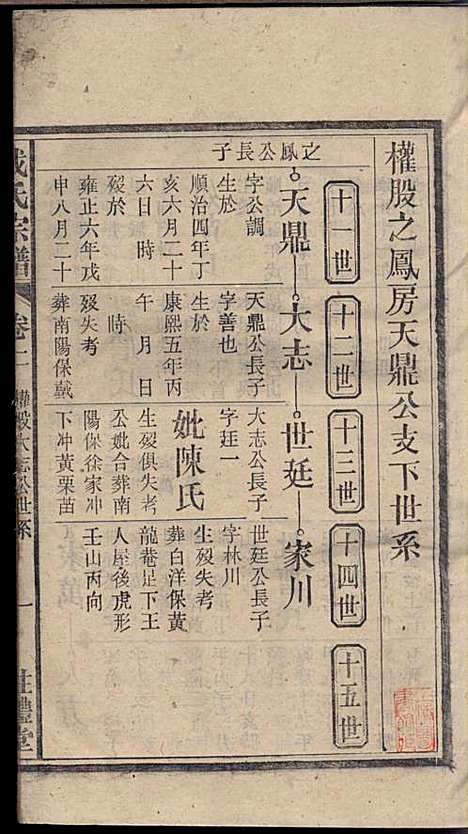 權股之鳳房天鼎公支下世系
十一世
十二世
十三世
十四世
十五世
之鳳公長子
天鼎
大志
世廷
家川
字公調
生於
順治四年丁
亥六月二十
六日 時
歿於
雍正六年戊
申八月二十
天鼎公長子
字善也
生於
康熙五年丙
午 月 日
時
歿失考
葬南陽保戴
大志公長子
字廷一
妣陳氏
生歿俱失考
公妣合葬南
陽保徐家冲
下冲黃栗苗
世廷公長子
字林川
生歿失考
葬白洋保黃
龍菴足下王
人屋後虎形
壬山丙向
氏宗譜
卷二
權股大志公世系
一
豊堂